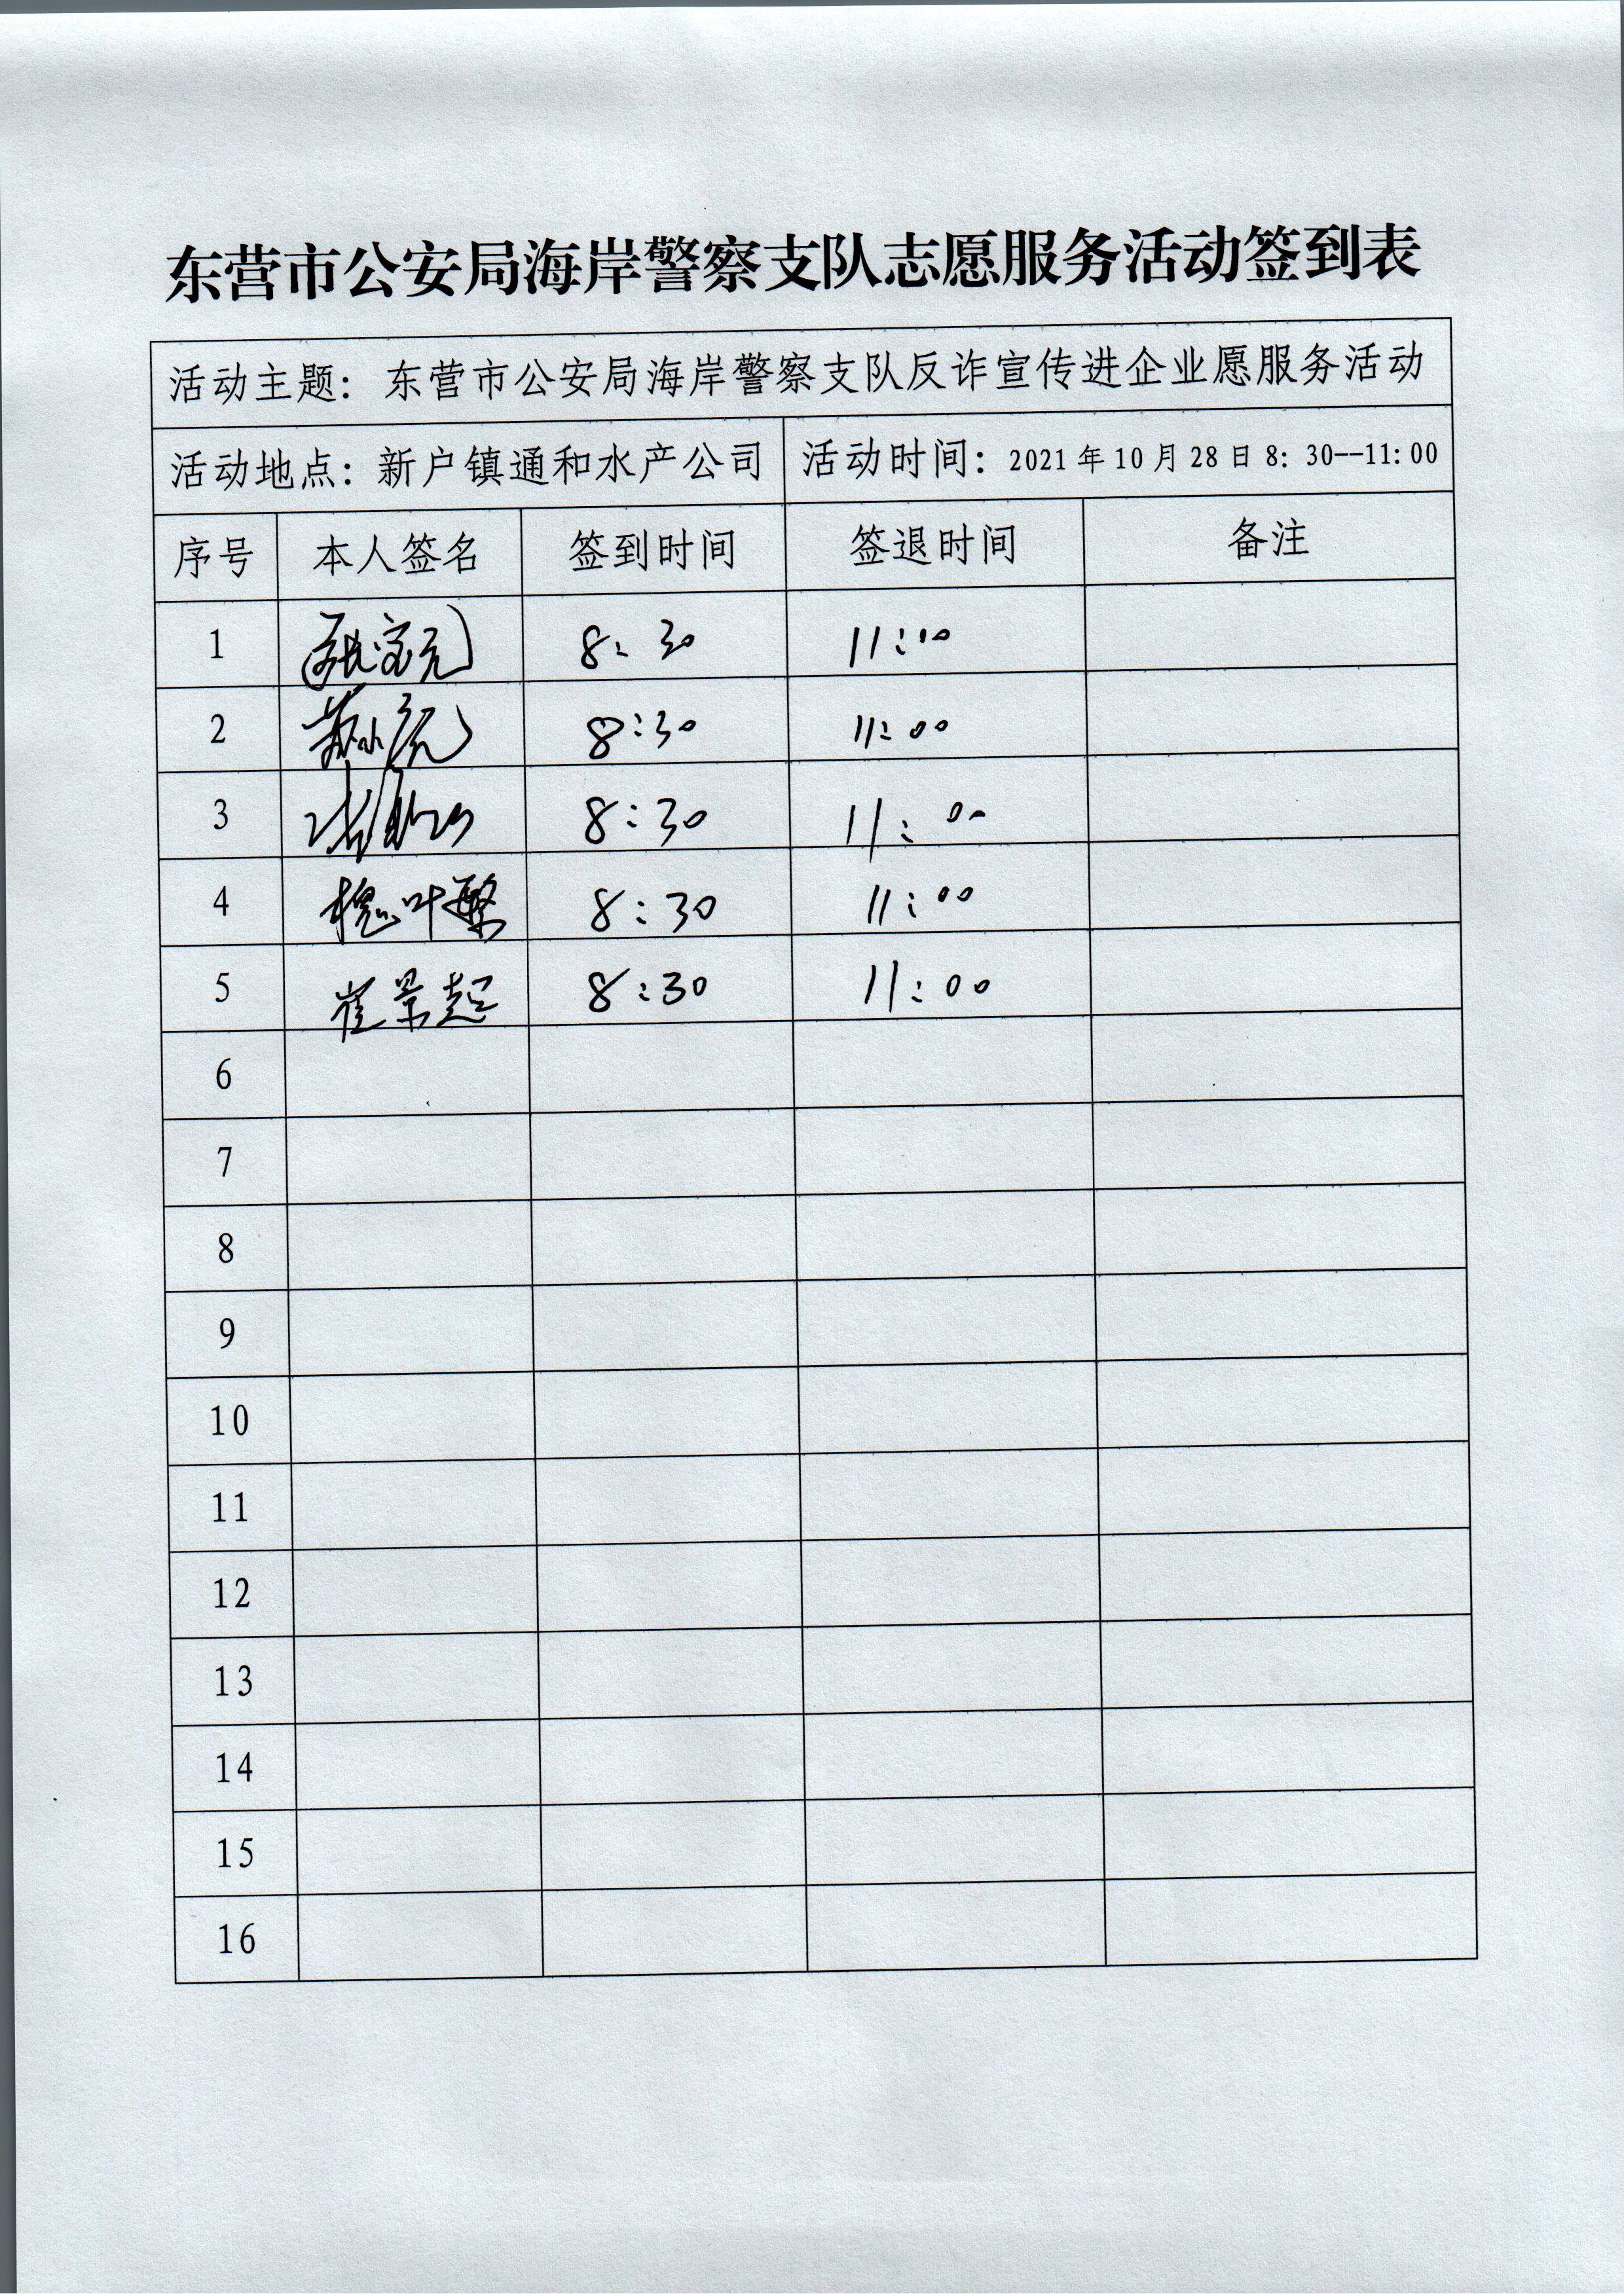 东营市公安局海岸警察支队志愿服务活动签到表
活动主题：东营市公安局海岸警察支队反诈宣传进企业愿服务活动
活动地点：新户镇通和水产公司 活动时间：2021年10月28日8：30--11:00
序号 本人签名 签到时间 签退时间 备注
1 8:30 11:00
2 8:30 11:00
3 8:30 11:00
4 槐叶繁 8:30 11:00
5 崔景起 8:30 11:00
6
7
8
9
10
11
12
13
14
15
16